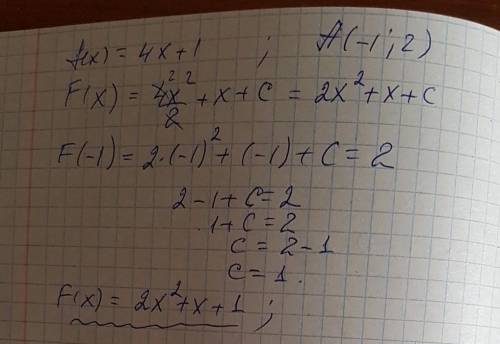 f(x) = 4x+1 ; A(-1; 2)
F(x) = 4x²/2 + x + C = 2x² + x + C
F(-1) = 2·(-1)² + (-1) + C = 2
2 - 1 + C = 2
1 + C = 2
C = 2 - 1
C = 1.
F(x) = 2x² + x + 1 ;